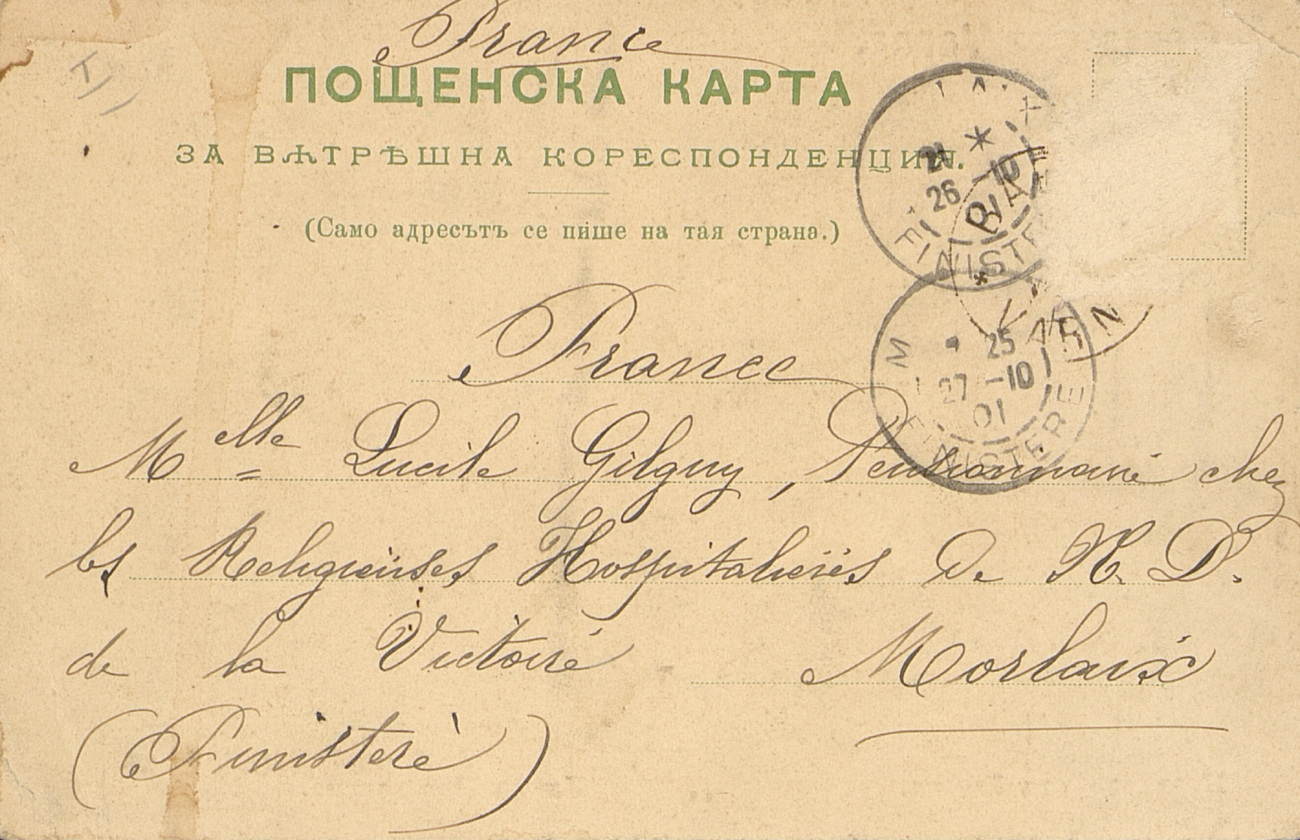 France
ПОЩЕНСКА КАРТА
ЗА ВѪТРѢШНА КОРЕСПОНДЕНЦИЯ.
(Само адресътъ се пише на тая страна.)
France
Melle Lucile Gilguy, Pensionnaire chez
les Religieuses Hospitalières de N. D.
de la Victoire Morlaix
(Finistère)
26 -10
01
FINISTERE
VARNA
25
27 -10
01
FINISTERE